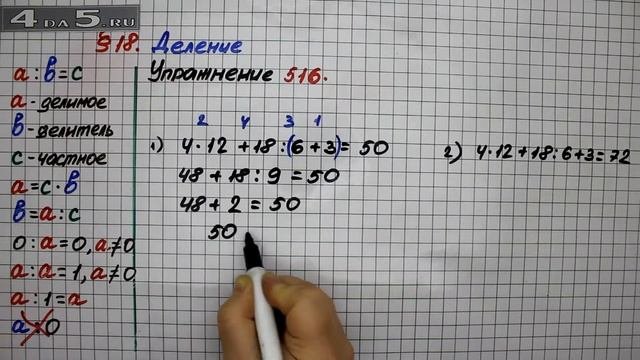 4 DA 5.RU
§18. Деление
Упражнение 516.
a : b = c
a - делимое
b - делитель
c - частное
a = c · b
b = a : c
0 : a = 0, a ≠ 0
a : a = 1, a ≠ 0
a : 1 = a
a : 0
2 4 3 1
1) 4 · 12 + 18 : (6 + 3) = 50
48 + 18 : 9 = 50
48 + 2 = 50
50
2) 4 · 12 + 18 : 6 + 3 = 72